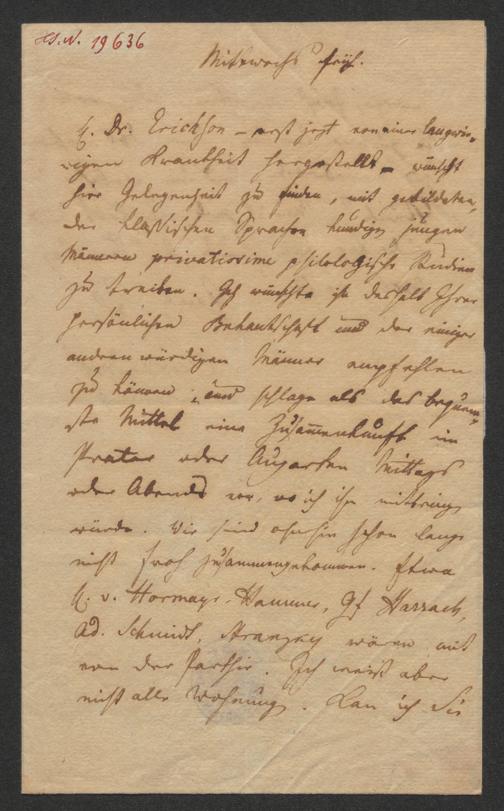 H.S.N. 19636
Mittwochs früh.
H. Dr. Erickson – erst jezt von einer langwie-
rigen Krankheit hergestellt – wünscht
hier Gelegenheit zu finden, mit gebildeten,
der klassischen Sprachen kundigen jungen
Männern privatissime philologische Studien
zu treiben. Ich wünschte ihn deshalb Ihrer
persönlichen Bekantschaft und der einiger
anderen würdigen Männer empfehlen
zu können; und schlage als das bequem-
ste Mittel eine Zusammenkunft im
Prater oder Augarten Mittags
oder Abends vor, wo ich ihn mitbringen
würde. Wir sind ohnehin schon lange
nicht froh zusammengekommen. Etwa
H. v. Hormayr, Hammer, Gf Harrach,
Ad. Schmidt, wären mit
von der Parthie. Ich weiß aber
nicht alle Wohnungen. Kan ich Sie